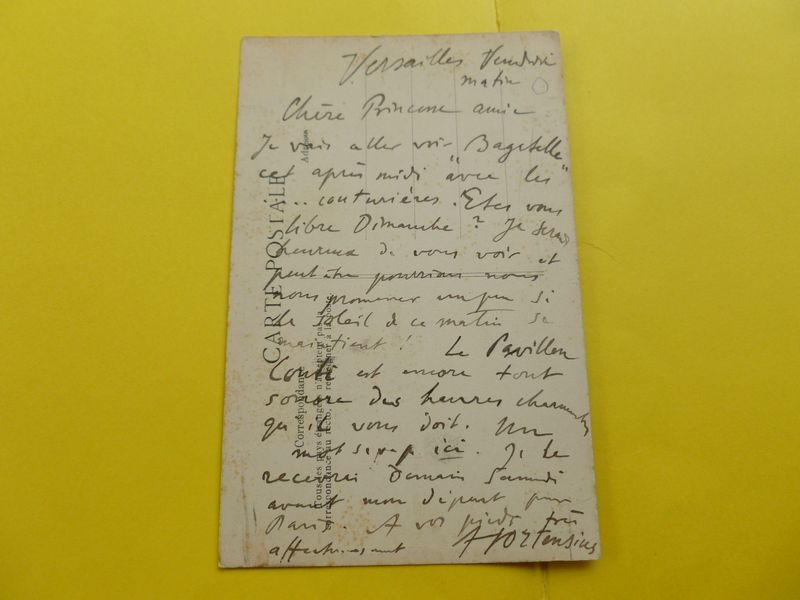 Versailles Vendredi
matin
Chère Princesse amie
Je vais aller voir "Bagatelle"
cet après midi avec les
... couturières. Etes vous
libre Dimanche ? Je serais
heureux de vous voir et
peut être pourrions nous
nous promener un peu si
le soleil de ce matin se
maintient ! Le Pavillon
Conti est encore tout
sonore des heures charmantes
qu'il vous doit. Un
mot s.v.p. ici. Je le
recevrai Demain Samedi
avant mon départ pour
Paris. A vos pieds très
affectueusement Hortensius
CARTE POSTALE
Adresse
Correspondance
Tous les pays étrangers n'acceptent pas la
correspondance au recto, se renseigner à la poste